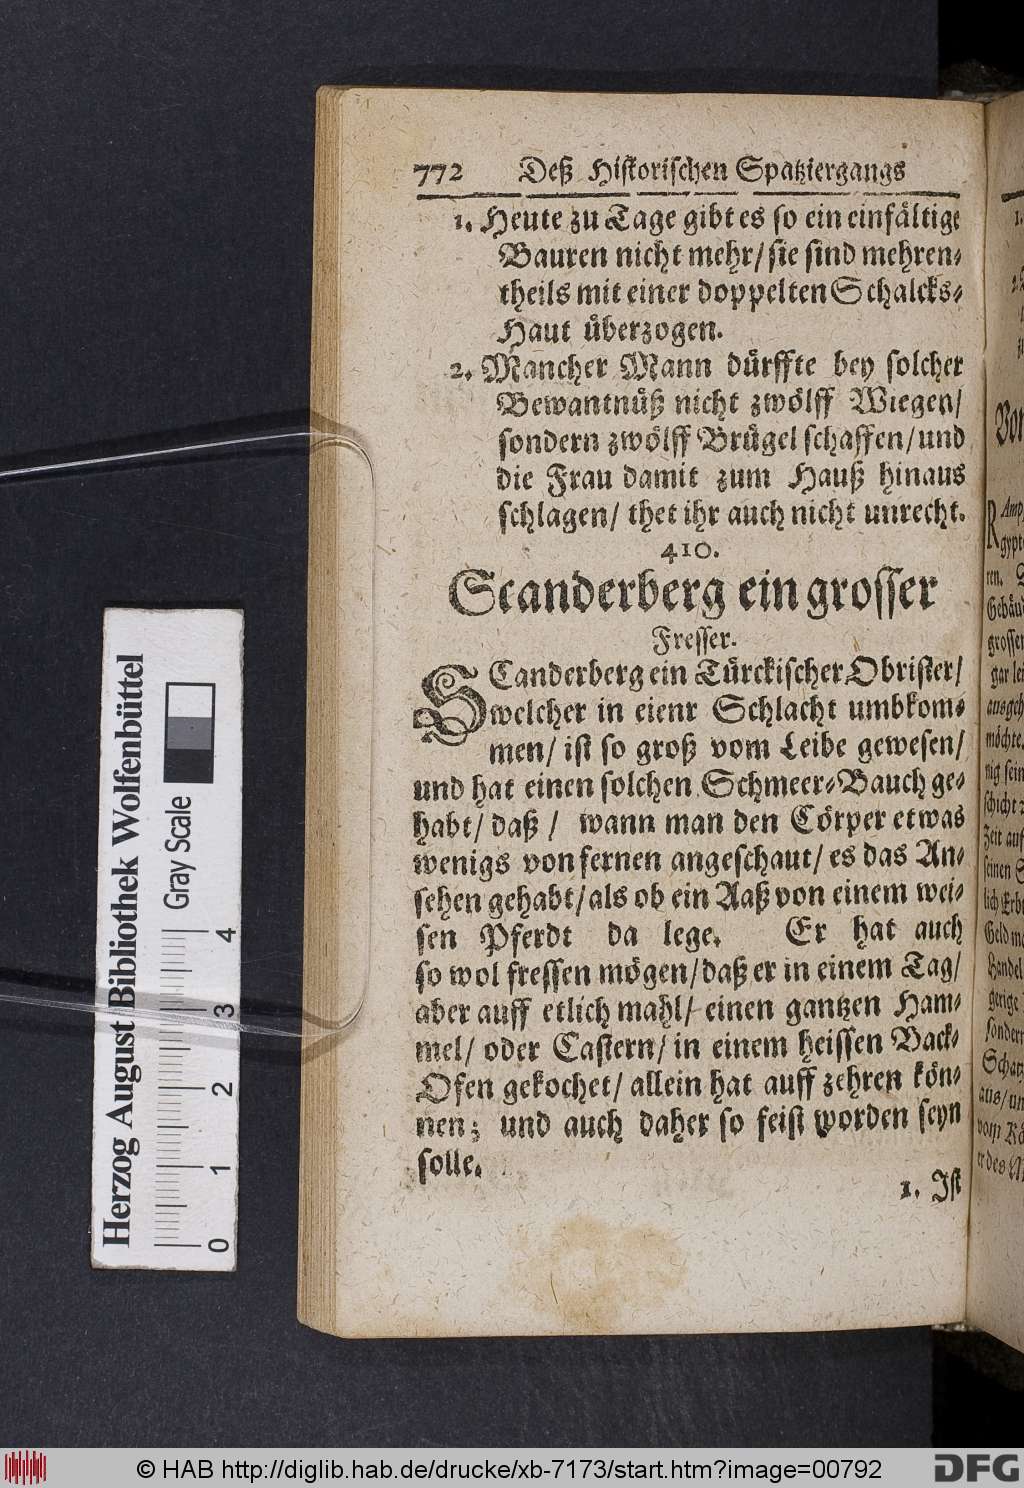 772 Deß Historischen Spatziergangs
1. Heute zu Tage gibt es so ein einfältige
Bauren nicht mehr/ sie sind mehren-
theils mit einer doppelten Schalcks-
Haut überzogen.
2. Mancher Mann dürffte bey solcher
Bewantnüß nicht zwölff Wiegen/
sondern zwölff Brügel schaffen/ und
die Frau damit zum Hauß hinaus
schlagen/ thet ihr auch nicht unrecht.
410.
Scanderberg ein grosser
Fresser.
SCanderberg ein Türckischer Obrister/
welcher in eienr Schlacht umbkom-
men/ ist so groß vom Leibe gewesen/
und hat einen solchen Schmeer-Bauch ge-
habt/ daß / wann man den Cörper etwas
wenigs von fernen angeschaut/ es das An-
sehen gehabt/ als ob ein Aaß von einem wei-
sen Pferdt da lege. Er hat auch
so wol fressen mögen/ daß er in einem Tag/
aber auff etlich mahl/ einen gantzen Ham-
mel/ oder Castern/ in einem heissen Back-
Ofen gekochet/ allein hat auff zehren kön-
nen; und auch daher so feist worden seyn
solle.
1. Ist
Herzog August Bibliothek Wolfenbüttel
Gray Scale
0 1 2 3 4
© HAB http://diglib.hab.de/drucke/xb-7173/start.htm?image=00792
DFG